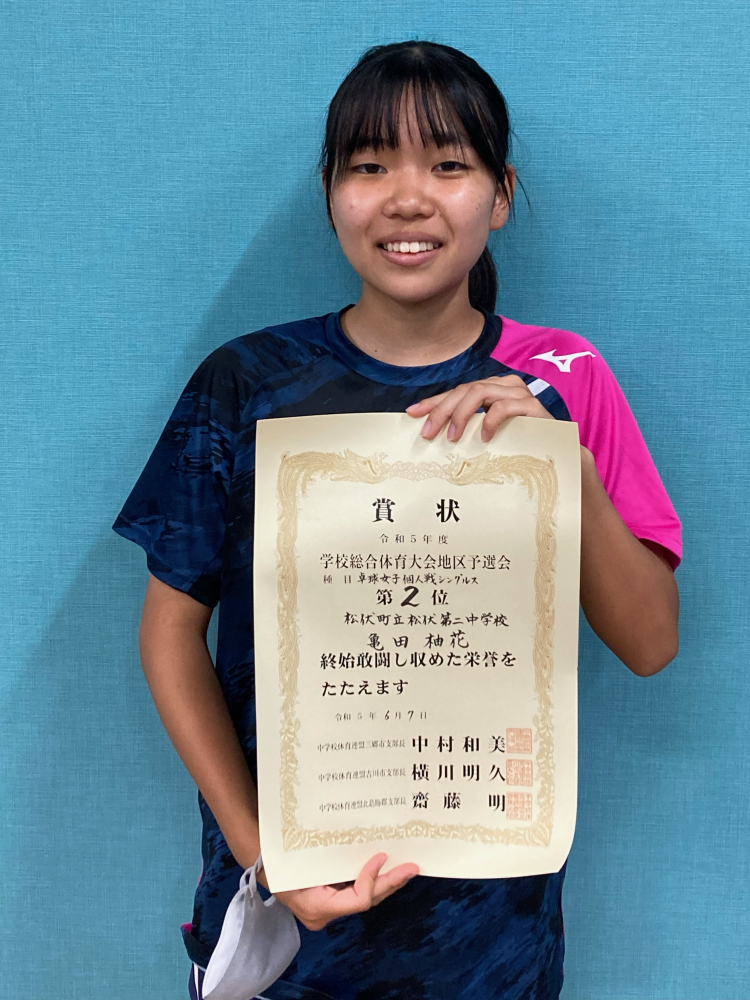 賞状
令和5年度
学校総合体育大会地区予選会
種目 卓球女子個人戦シングルス
第2位
松伏町立松伏第二中学校
亀田 柚花
終始敢闘し収めた栄誉を
たたえます
令和5年6月7日
中学校体育連盟三郷市支部長 中村和美
中学校体育連盟吉川市支部長 横川明久
中学校体育連盟北葛飾郡支部長 齋藤 明